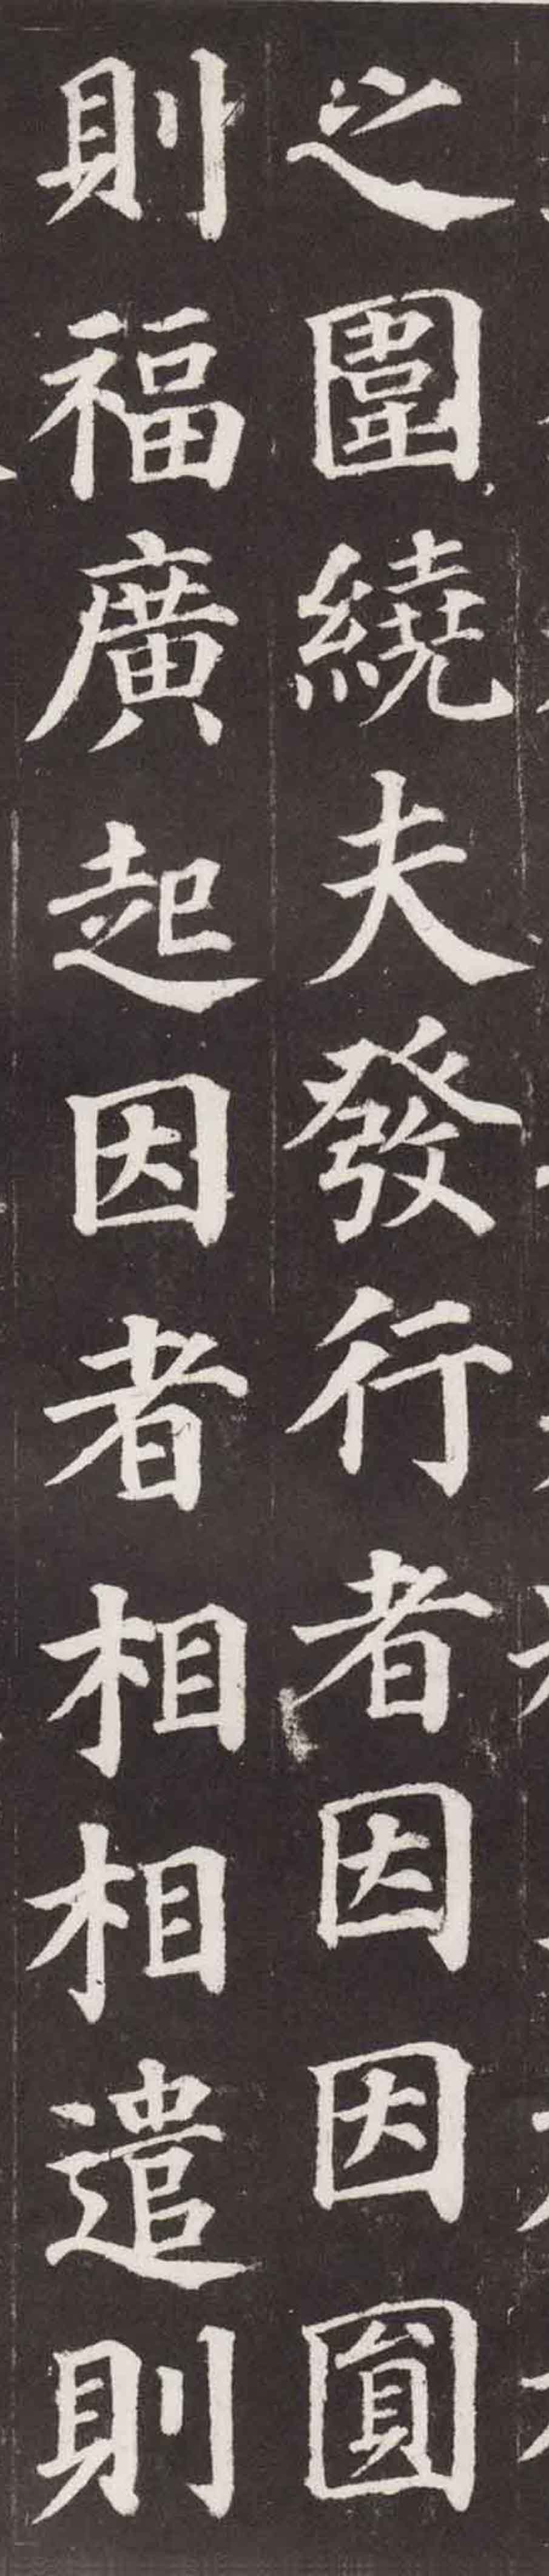 之圍繞夫發行者因因圓
則福廣起因者相相遣則